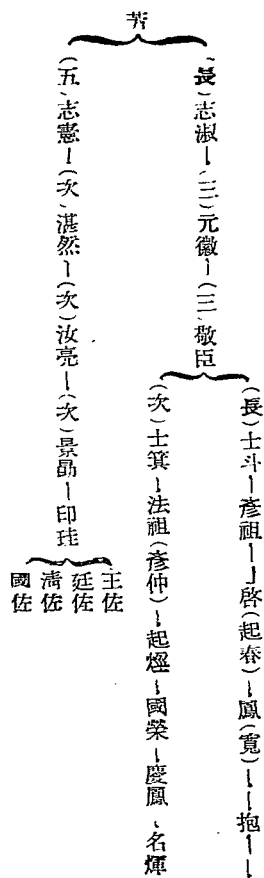 芳
(長)志淑—(三)元徽—(三)敬臣
(長)士斗—彥祖—啓(起春)—鳳(寬)—抱—
(次)士箕—法祖(彥仲)—起煙—國榮—慶鳳—名煇
(五)志憲—(次)湛然—(次)汝亮—(次)景勗—印珪
王佐
廷佐
清佐
國佐